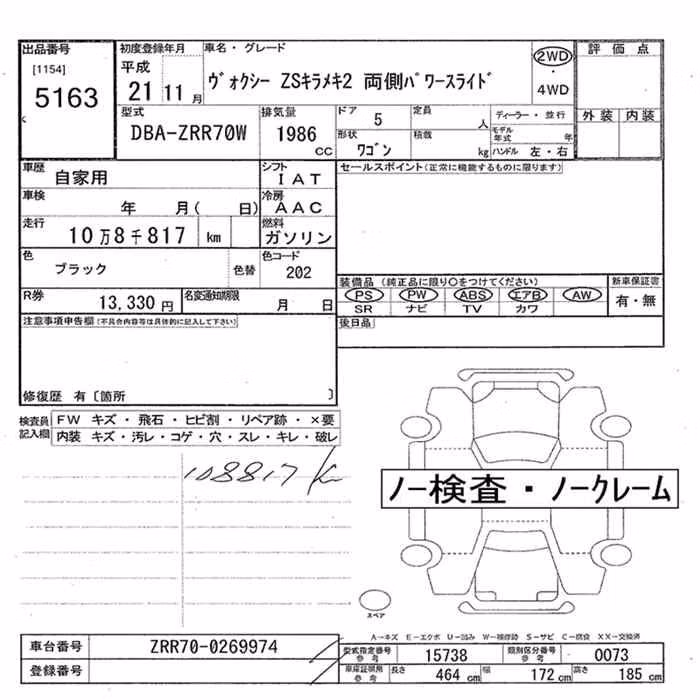 出品番号
[1154]
5163
初度登録年月
平成
21 11 月
車名・グレード
ヴォクシー ZSキラメキ2 両側パワースライド
2WD
・
4WD
評価点
外装 内装
型式
DBA-ZRR70W
排気量
1986 CC
ドア 5
定員 人
形状
ワゴン
積載 kg
ディーラー・並行
モデル年式 年
ハンドル 左・右
車歴
自家用
シフト
IAT
車検
年 月( 日)
冷房
AAC
走行
10万8千817 km
燃料
ガソリン
色
ブラック
色替
色コード
202
R券
13,330 円
名変通知期限
月 日
セールスポイント(正常に機能するものに限ります)
装備品 (純正品に限り○をつけてください)
PS PW ABS エアB AW
SR ナビ TV カワ
新車保証書
有・無
後日品
注意事項申告欄(不具合内容等は具体的に記入して下さい)
修復歴 有〔箇所 〕
検査員記入欄
FW キズ・飛石・ヒビ割・リペア跡・×要
内装 キズ・汚レ・コゲ・穴・スレ・キレ・破レ
108817 Km
ノー検査・ノークレーム
スペア
A→キズ E→エクボ U→凹み W→補修跡 S→サビ C→腐食 XX→交換済
車台番号 ZRR70-0269974
登録番号
型式指定番号 参考 15738
類別区分番号 参考 0073
車庫証明用 参考 長さ 464 cm 幅 172 cm 高さ 185 cm